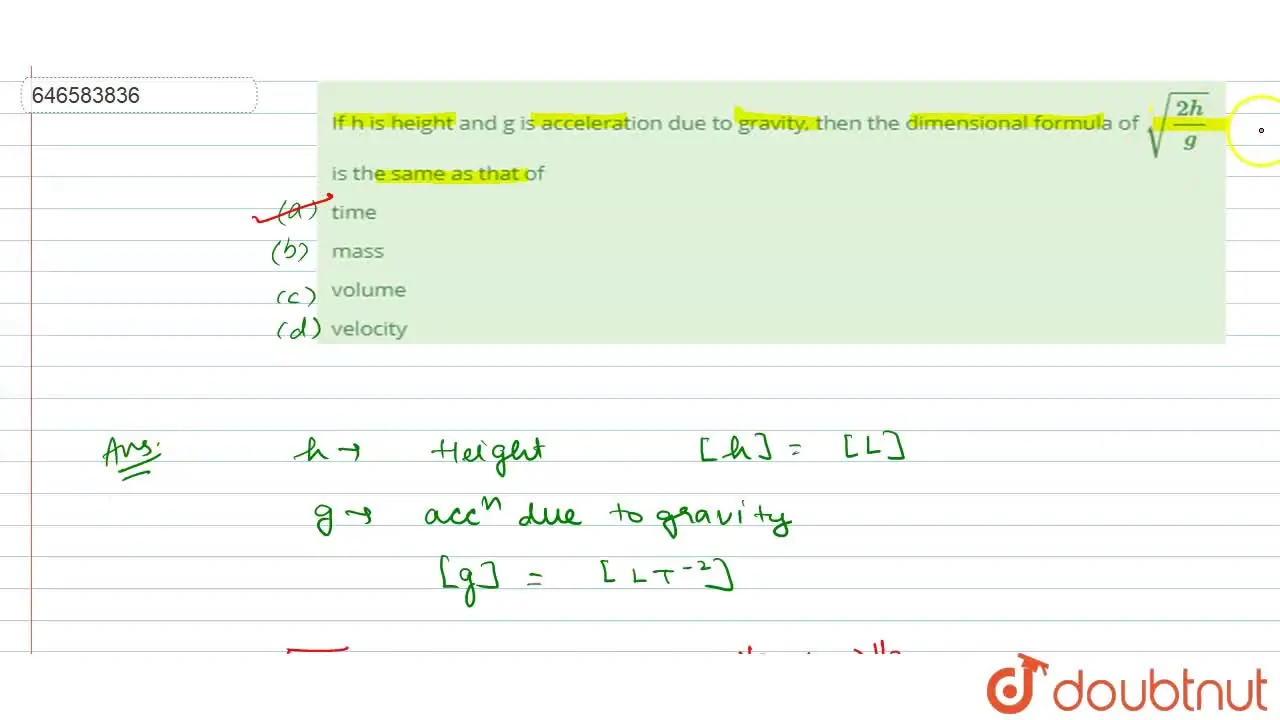 646583836
If h is height and g is acceleration due to gravity, then the dimensional formula of √(2h/g)
is the same as that of
(a) time
(b) mass
(c) volume
(d) velocity
Ans: h → Height [h] = [L]
g → accⁿ due to gravity
[g] = [LT⁻²]
doubtnut